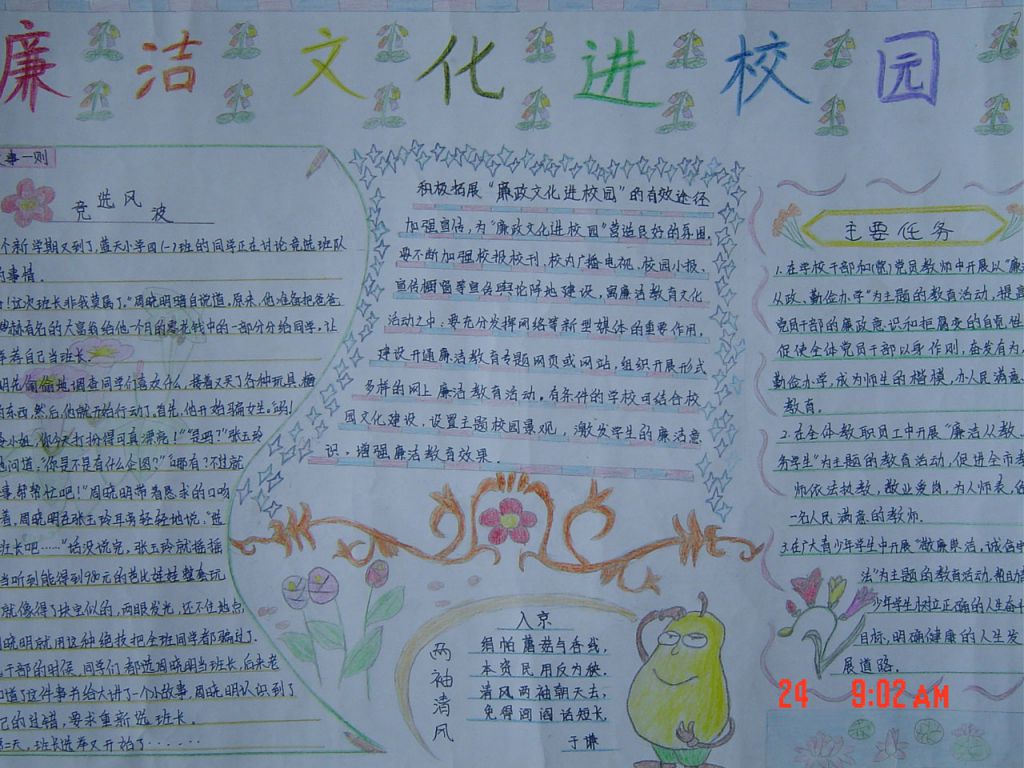 廉洁文化进校园
事一则
竞选风波
个新学期又到了,蓝天小学四(一)班的同学正在讨论竞选班队
的事情。
!这次班长非我莫属了。"周晓明暗自说道,原来,他准备把爸爸
赫有名的大富翁给他一个月的零花钱中的一部分分给同学,让
荐自己当班长。
明先偷偷地调查同学们喜欢什么,接着又买了各种玩具,
的东西,然后,他就开始行动了。首先,他开始骗女生。
小姐,你今天打扮得可真漂亮!""是吗?"张玉玲
地问道,"你是不是有什么企图?""哪有?不过就
事帮帮忙吧!"周晓明带着恳求的口吻
着,周晓明在张玉玲耳旁轻轻地说,"选
班长吧……"话没说完,张玉玲就摇摇
当听到能得到980元的芭比娃娃整套玩
就像得了块宝似的,两眼发光,还不住地点,
周晓明就用这种绝技把全班同学都骗过了.
干部的时候,同学们都选周晓明当班长,后来老
知道了这件事并给大讲了一个小故事,周晓明认识到了
己的过错,要求重新选班长.
第二天,班长选举又开始了······
积极拓展"廉政文化进校园"的有效途径
加强宣传,为"廉政文化进校园"营造良好的氛围,
要不断加强校报校刊,校内广播电视、校园小报、
宣传橱窗等宣传舆论阵地建设,寓廉洁教育文化
活动之中;要充分发挥网络等新型媒体的重要作用,
建设开通廉洁教育专题网页或网站,组织开展形式
多样的网上廉洁教育活动。有条件的学校可结合校
园文化建设,设置主题校园景观,激发学生的廉洁意
识,增强廉洁教育效果.
两袖清风
入京
绢帕蘑菇与香线,
本资民用反为殃.
清风两袖朝天去,
免得闾阎话短长.
于谦
主要任务
1.在学校干部和(党)党员教师中开展以"廉
从政、勤俭办学"为主题的教育活动,提高
党员干部的廉政意识和拒腐变的自觉性
促使全体党员干部以身作则,奋发有为,
勤俭办学,成为师生的楷模,办人民满意
教育.
2.在全体教职员工中开展"廉洁从教、
务学生"为主题的教育活动,促进全市教
师依法执教,敬业爱岗,为人师表,
一名人民满意的教师.
3.在广大青少年学生中开展"敬廉崇洁,诚信守
法"为主题的教育活动,帮助青
少年学生树立正确的人生奋斗
目标,明确健康的人生发
展道路.
24 9:02AM